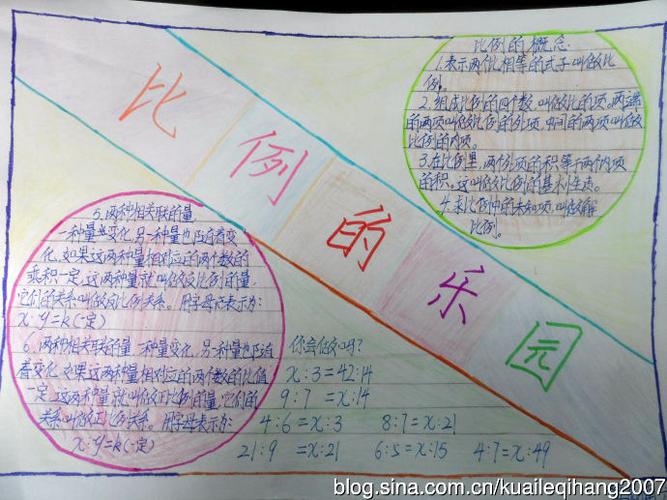 比例的乐园
比例的概念
1.表示两个比相等的式子叫做比
例。
2.组成比例的四个数,叫做比的项。两端
的两项叫做比例的外项,中间的两项叫做
比例的内项。
3.在比例里,两个外项的积等于两个内项
的积。这叫做比例的基本性质。
4.求比例中的未知项,叫做解
比例。
5.两种相关联的量,
一种量变化,另一种量也随着变
化,如果这两种量相对应的两个数的
乘积一定,这两种量就叫做反比例的量,
它们的关系叫做反比例关系。用字母表示为:
x·y=k(一定)
6.两种相关联的量,一种量变化,另一种量也随
着变化,如果这两种量相对应的两个数的比值
一定,这两种量就叫做正比例的量,它们的
关系叫做正比例关系。用字母表示为:
x:y=k(一定)
你会做吗?
x:3=42:14
9:7=x:14
4:6=x:3 8:7=x:21
21:9=x:21 6:5=x:15 4:7=x:49
blog.sina.com.cn/kuaileqihang2007